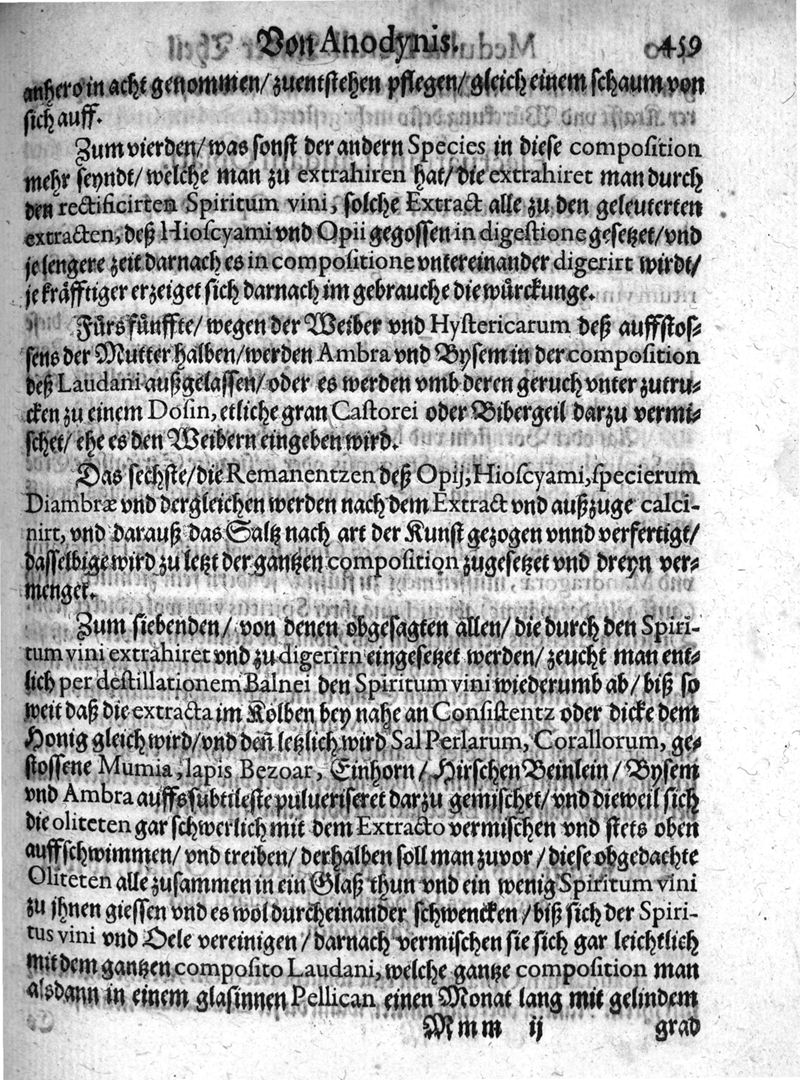 Von Anodynis. 459
anhero in acht genommen/ zuentstehen pflegen/ gleich einem schaum von
sich auff.
Zum vierden/ was sonst der andern Species in diese composition
mehr seyndt/ welche man zu extrahiren hat/ die extrahiret man durch
den rectificirten Spiritum vini, solche Extract alle zu den geleuterten
extracten, deß Hioscyami vnd Opii gegossen in digestione gesetzet/ vnd
je lengere zeit darnach es in compositione vntereinander digerirt wirdt/
je kräfftiger erzeiget sich darnach im gebrauche die würckunge.
Fürs fünffte/ wegen der Weiber vnd Hystericarum deß auffstos-
sens der Mutter halben/ werden Ambra vnd Bysem in der composition
deß Laudani außgelassen/ oder es werden vmb deren geruch vnter zutru-
cken zu einem Dosin, etliche gran Castorei oder Bibergeil darzu vermi-
schet/ ehe es den Weibern eingeben wird.
Das sechste/ die Remanentzen deß Opij, Hioscyami, specierum
Diambræ vnd dergleichen werden nach dem Extract vnd außzuge calci-
nirt, vnd darauß das Saltz nach art der Kunst gezogen vnnd verfertigt/
dasselbige wird zu letzt der gantzen composition zugesetzet vnd dreyn ver-
menget.
Zum siebenden/ von denen obgesagten allen/ die durch den Spiri-
tum vini extrahiret vnd zu digerirn eingesetzet werden/ zeucht man ent-
lich per destillationem Balnei den Spiritum vini wiederumb ab/ biß so
weit daß die extracta im Kolben bey nahe an Consistentz oder dicke dem
Honig gleich wird/ vnd deñ letzlich wird Sal Perlarum, Corallorum, ge-
stossene Mumia, lapis Bezoar, Einhorn/ Hirschen Beinlein/ Bysem
vnd Ambra auffs subtileste pulueriseret darzu gemischet/ vnd dieweil sich
die oliteten gar schwerlich mit dem Extracto vermischen vnd stets oben
auff schwimmen/ vnd treiben/ derhalben soll man zuvor/ diese obgedachte
Oliteten alle zusammen in ein Glaß thun vnd ein wenig Spiritum vini
zu ihnen giessen vnd es wol durcheinander schwencken/ biß sich der Spiri-
tus vini vnd Oele vereinigen/ darnach vermischen sie sich gar leichtlich
mit dem gantzen composito Laudani, welche gantze composition man
alsdann in einem glasinnen Pellican einen Monat lang mit gelindem
Mmm ij grad